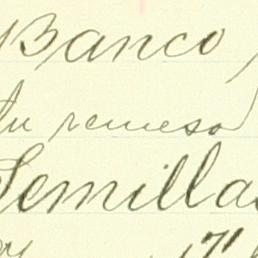 Banco
tu remesa
Semillas